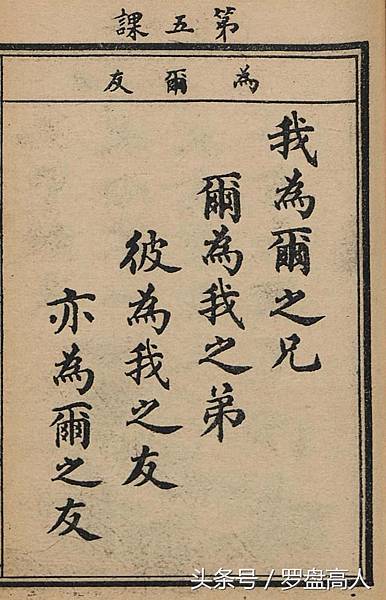 第五課
為爾友
我為爾之兄
爾為我之弟
彼為我之友
亦為爾之友
头条号／罗盘高人